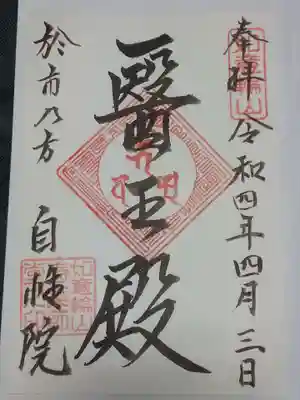 如意輪山
奉拝 令和四年四月三日
醫王殿
於市乃方 自性院